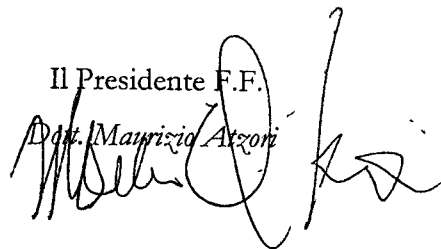 Il Presidente F.F.
Dott. Maurizio Atzori